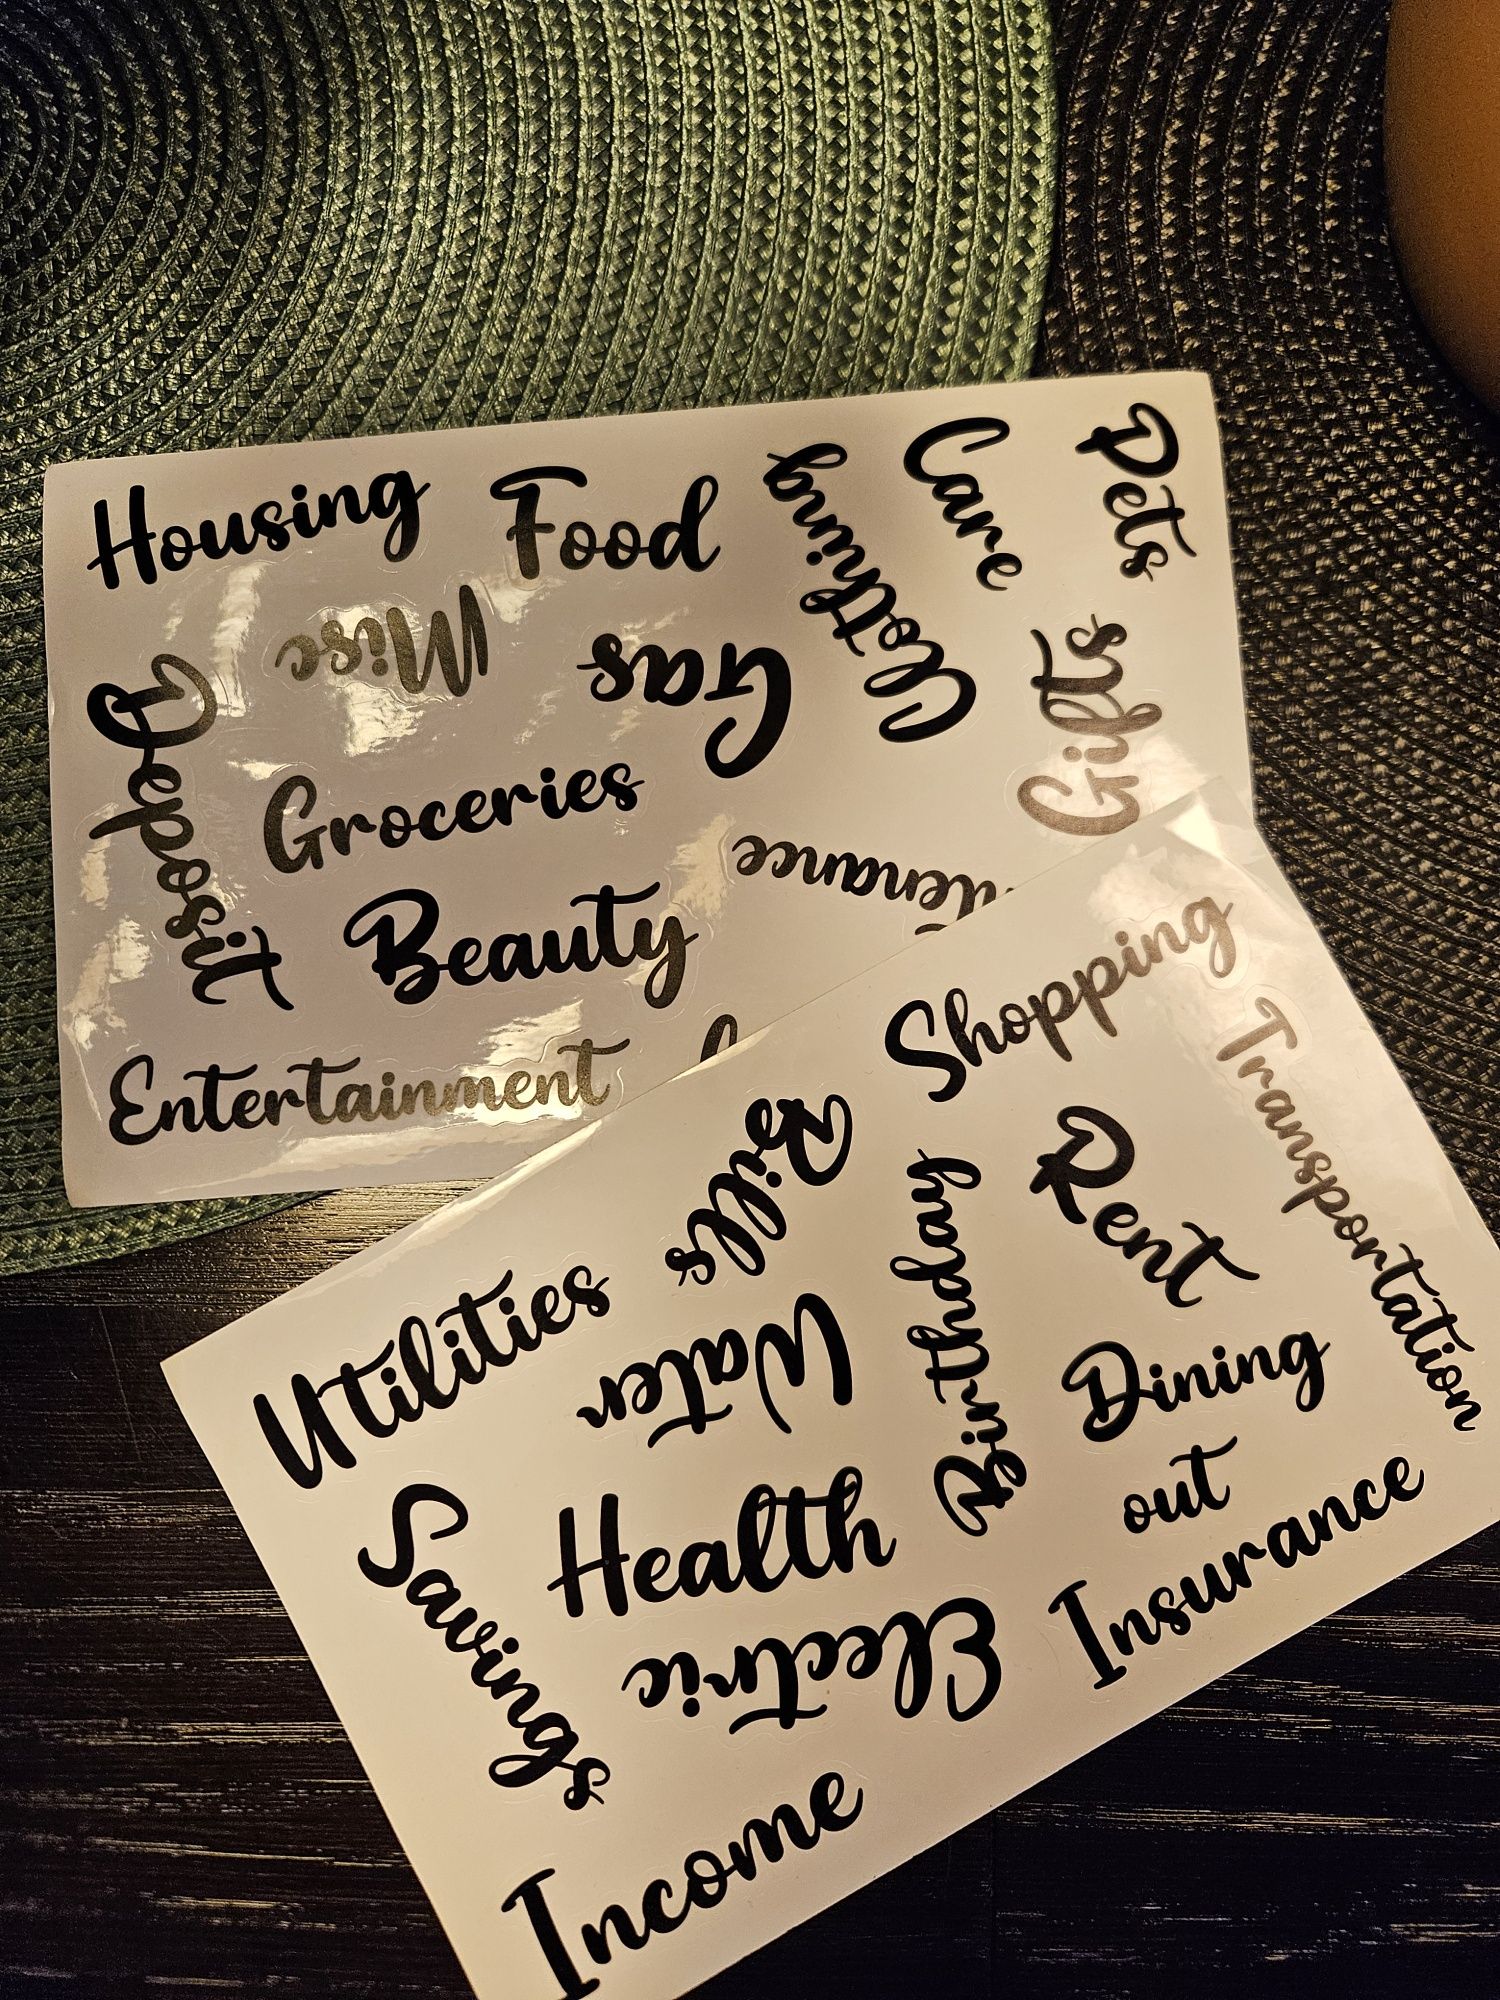 Housing
Food
Clothing
Care
Pets
Misc
Gas
Gifts
Deposit
Groceries
Beauty
Entertainment
Shopping
Transportation
Bills
Rent
Birthday
Utilities
Water
Dining
out
Savings
Health
Insurance
Electric
Income